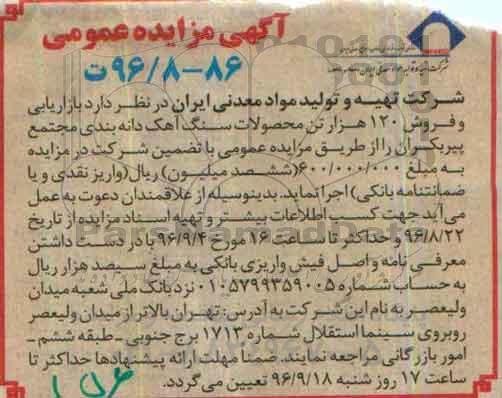 آگهی مزایده عمومی
۹۶/۸-۸۶ت
شرکت تهیه و تولید مواد معدنی ایران در نظر دارد بازاریابی
و فروش ۱۲۰ هزار تن محصولات سنگ آهک دانه بندی مجتمع
پیربکران را از طریق مزایده عمومی با تضمین شرکت در مزایده
به مبلغ ۶۰۰/۰۰۰/۰۰۰(ششصد میلیون) ریال (واریز نقدی و یا
ضمانتنامه بانکی) اجرا نماید. بدینوسیله از علاقمندان دعوت به عمل
می آید جهت کسب اطلاعات بیشتر و تهیه اسناد مزایده از تاریخ
۹۶/۸/۲۲ و حداکثر تا ساعت ۱۶ مورخ ۹۶/۹/۴ با در دست داشتن
معرفی نامه و اصل فیش واریزی بانکی به مبلغ سیصد هزار ریال
به حساب شماره ۰۱۰۵۷۹۹۳۵۹۰۰۵ نزد بانک ملی شعبه میدان
ولیعصر به نام این شرکت به آدرس: تهران بالاتر از میدان ولیعصر
روبروی سینما استقلال شماره ۱۷۱۳ برج جنوبی ـ طبقه ششم ـ
امور بازرگانی مراجعه نمایند. ضمنا مهلت ارائه پیشنهادها حداکثر تا
ساعت ۱۷ روز شنبه ۹۶/۹/۱۸ تعیین می گردد.